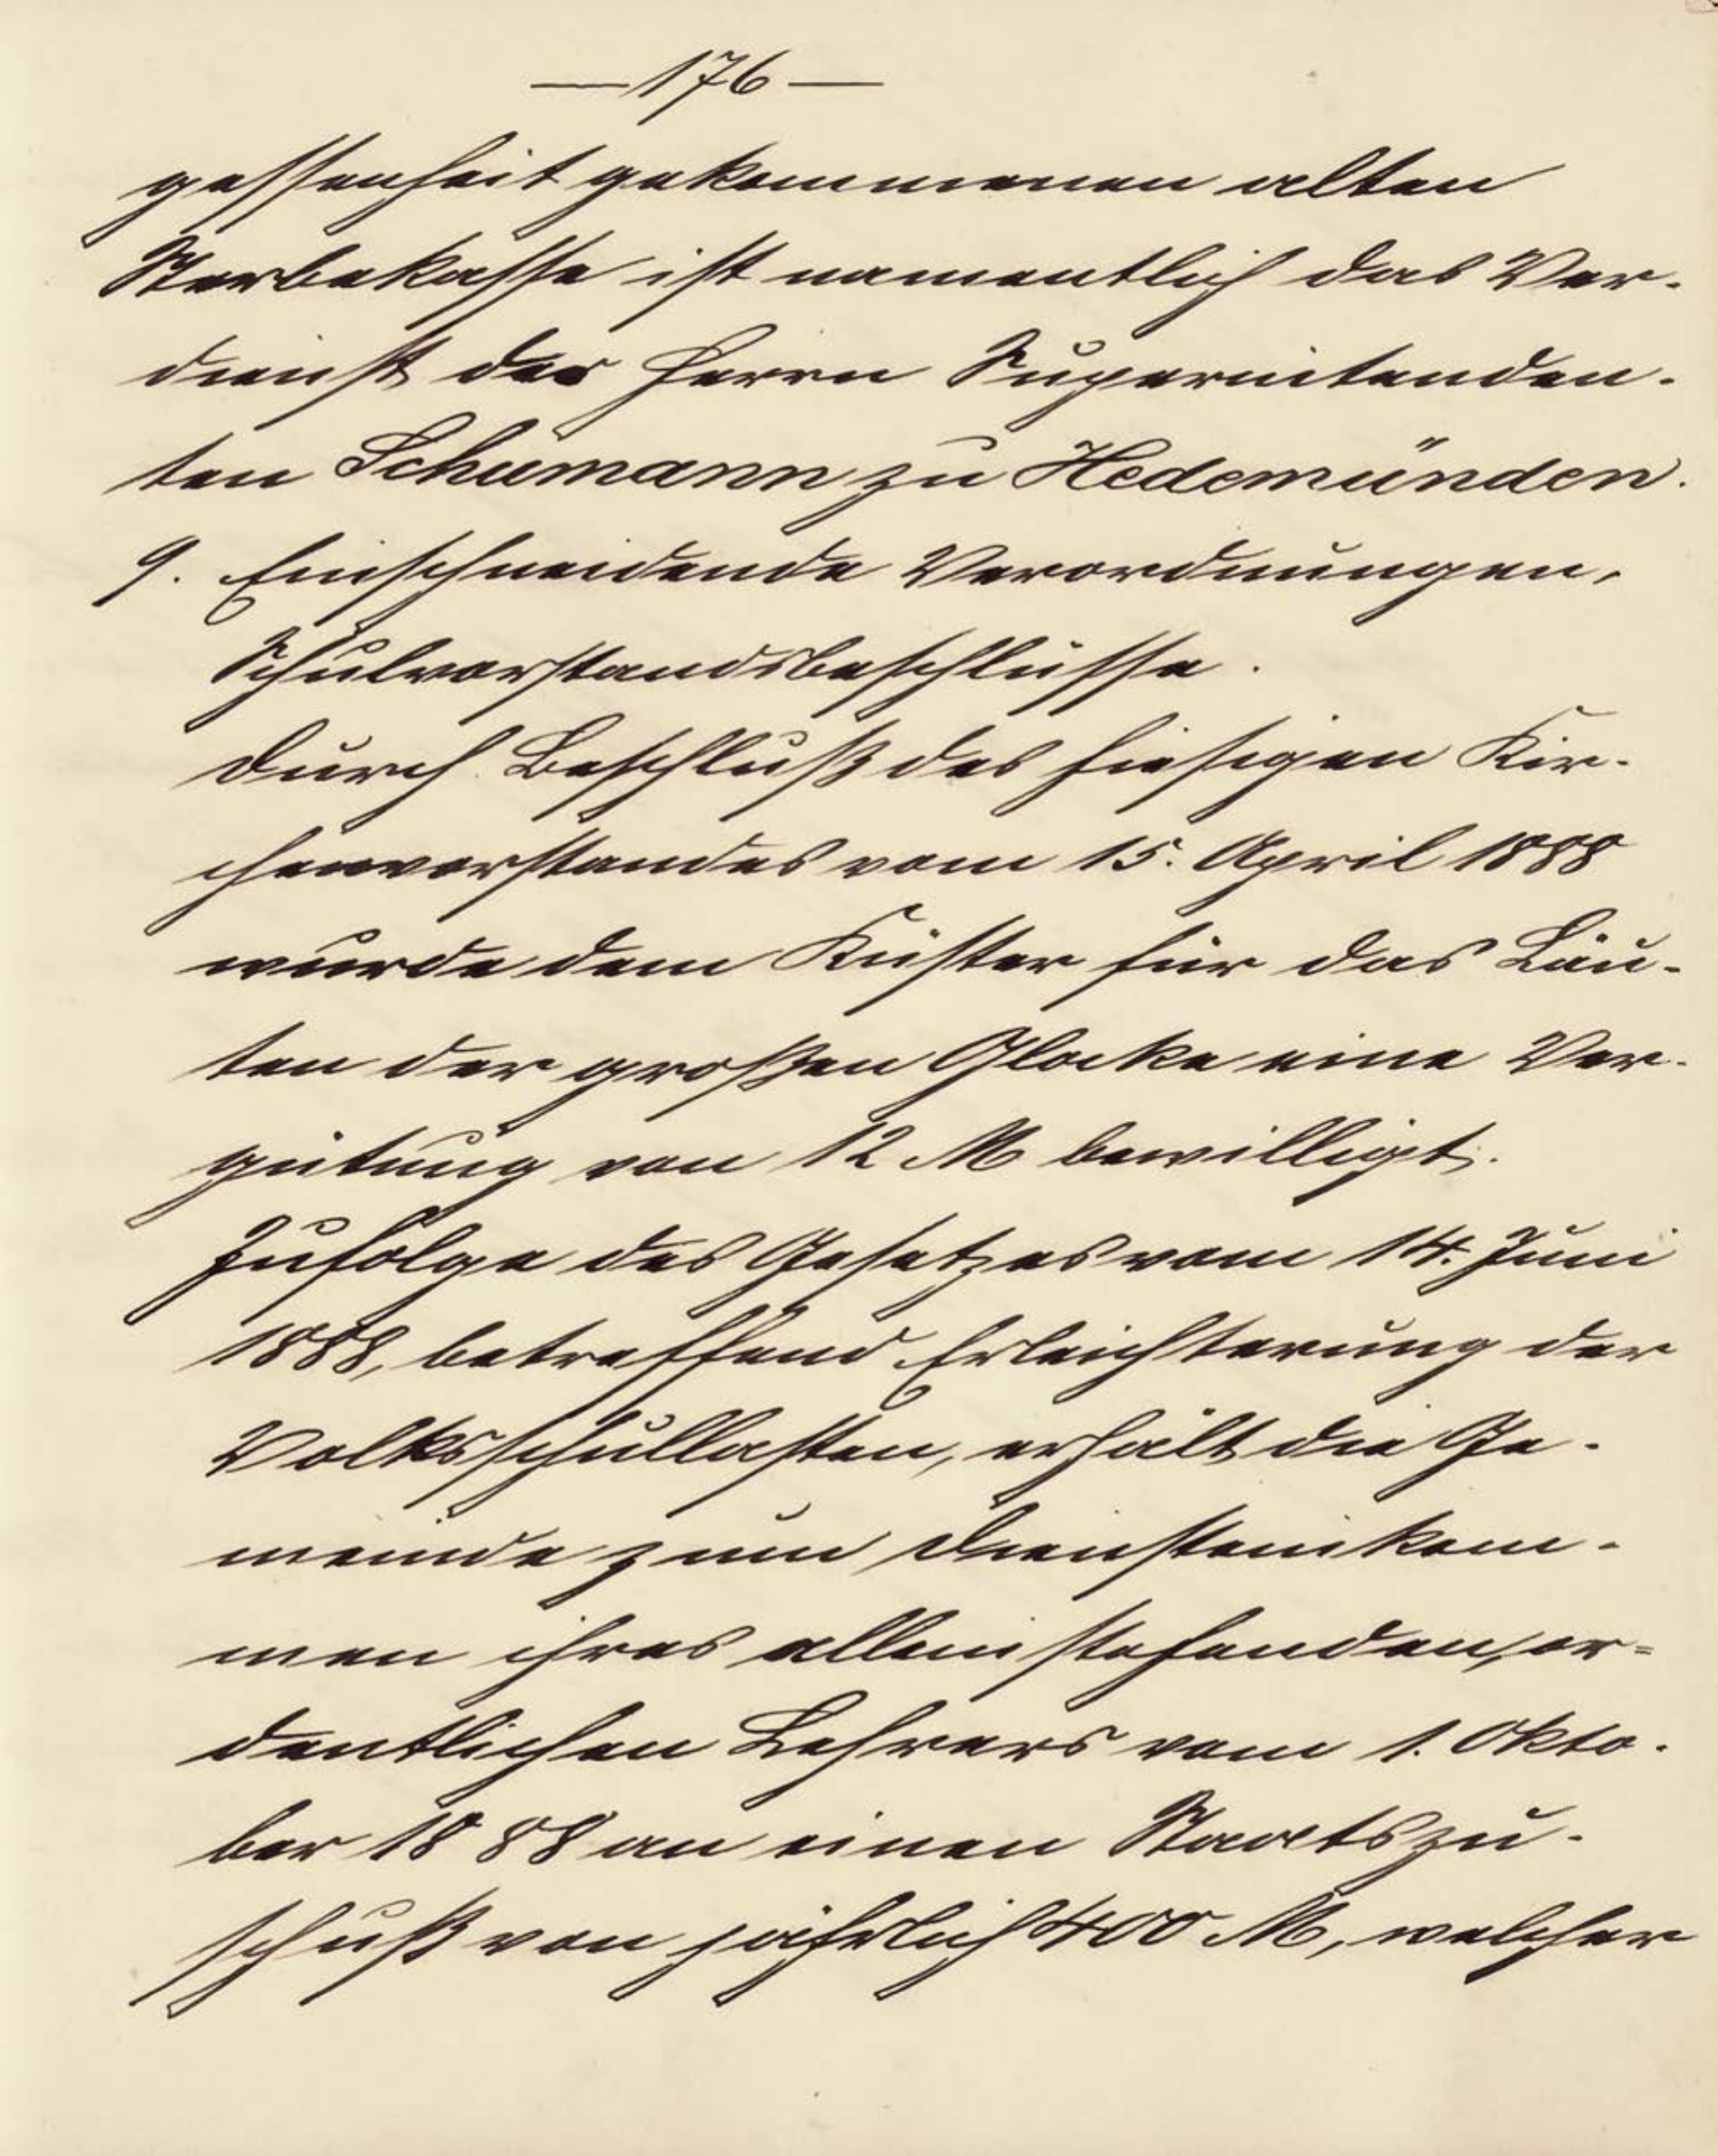 — 176 —
gessenheit gekommenen alten
Sterbekasse ist namentlich das Ver-
dienst des Herrn Superintenden-
ten Schümann zu Hedemünden.
9. Einschneidende Verordnungen,
Schulvorstandsbeschlüsse.
Durch Beschluß des hiesigen Kir-
chenvorstandes vom 15. April 1888
wurde dem Küster für das Läu-
ten der großen Glocke eine Ver-
gütung von 12 M bewilligt.
Zufolge des Gesetzes vom 14. Juni
1888, betreffend Erleichterung der
Volksschullasten, erhält die Ge-
meinde zum Diensteinkom-
men ihres alleinstehenden, or=
dentlichen Lehrers vom 1. Okto-
ber 1888 an einen Staatszu-
schuß von jährlich 400 M, welcher